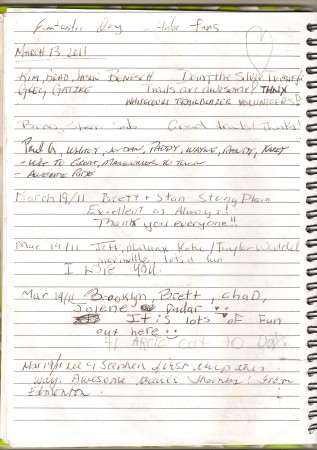 Fantastic day
fans
MARCH 13 2011
KIM, BRAD, JASON BENESCH Doing the Silver Triangle
GREG GATZKE Trails are awesome! THNX
WHITECOURT TRAILBLAZER VOLUNTEERS
Brad, Sheri Great trails! Thanks!
Paul G, PADDY, WAYNE, RANDY,
- WAY TO GROOM,
- AWESOME RIDE
March 19/11 Brett + Stan Stony Plain
Excellent as Always!
Thank you everyone!!
Mar 19/11 Jeff, Melanie Katie / Taylor
morinville lots a fun
I love you.
Mar 19/11 Brooklyn, Brett, Chad,
Jolene Dudar
It is lots of Fun
out here
Arctic cat to DAY
Mar 19/11
way. Awesome trails from
Edmonton.